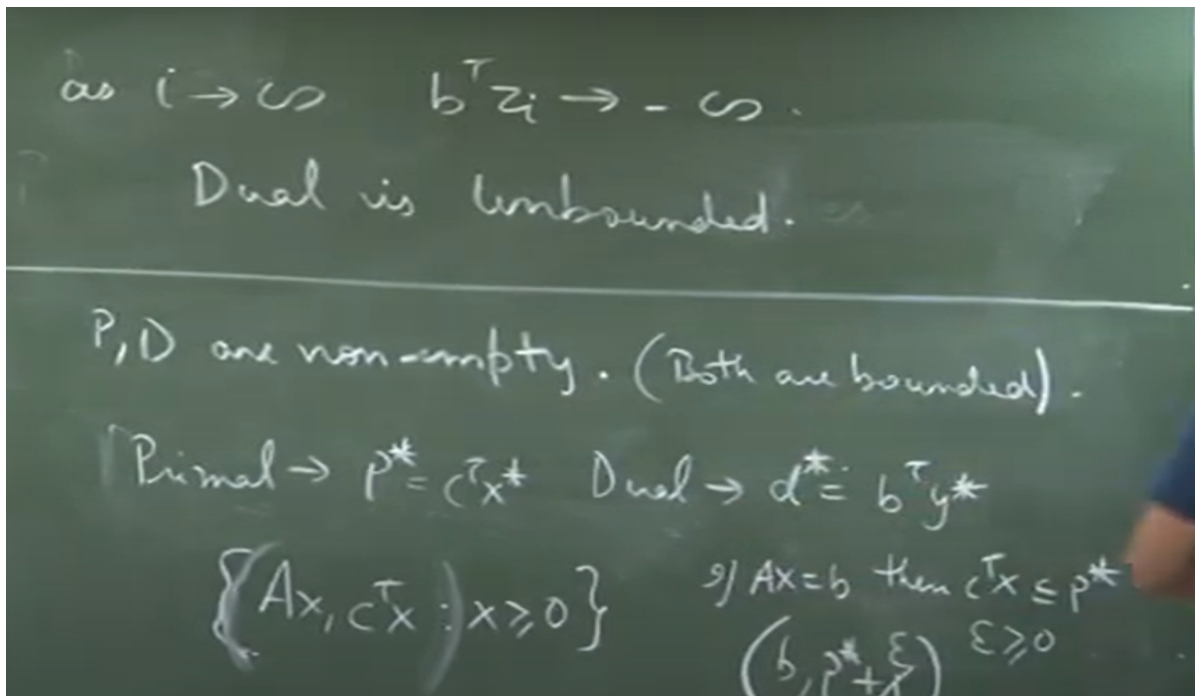 as i → ∞ bᵀzᵢ → - ∞.
Dual is Unbounded.
P, D are non-empty. (Both are bounded).
Primal → p* = cᵀx* Dual → d* = bᵀy*
{(Ax, cᵀx) : x ≥ 0}
If Ax = b then cᵀx ≤ p*
(b, p* + ε) ε ≥ 0